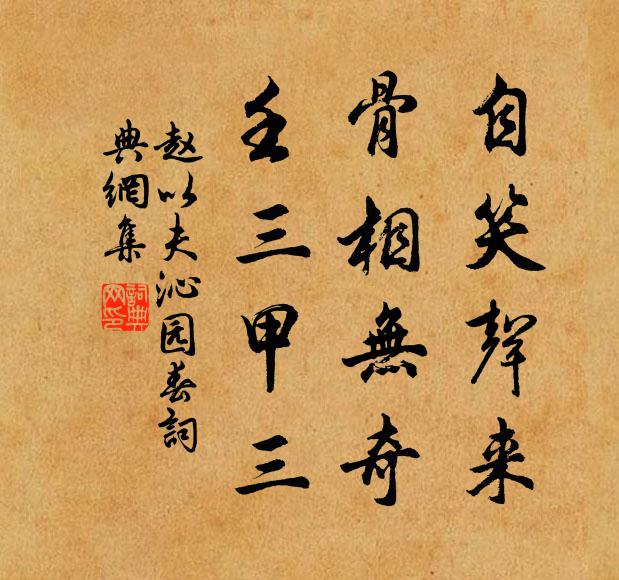 自笑聲来
骨相無奇
壬三甲三
赵以夫沁园春詞
典網集
詞典
网印